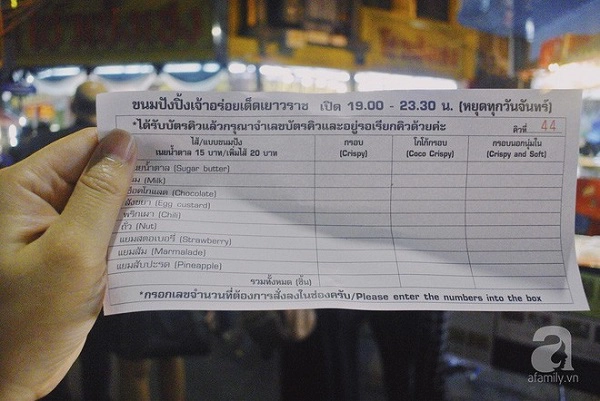 ขนมปังปิ้งเจ้าอร่อยเด็ดเยาวราช เปิด 19.00 - 23.30 น. (หยุดทุกวันจันทร์)
*ได้รับบัตรคิวแล้วกรุณาจำเลขบัตรคิวและอยู่รอเรียกคิวด้วยค่ะ คิวที่ 44
ไส้/แบบขนมปัง
เนยน้ำตาล 15 บาท/เพิ่มไส้ 20 บาท
กรอบ (Crispy)
โกโก้กรอบ (Coco Crispy)
กรอบนอกนุ่มใน (Crispy and Soft)
เนยน้ำตาล (Sugar butter)
(Milk)
(Chocolate)
สังขยา (Egg custard)
พริกเผา (Chili)
ถั่ว (Nut)
แยมสตอเบอรี่ (Strawberry)
แยมส้ม (Marmalade)
แยมสับปะรด (Pineapple)
รวมทั้งหมด (ชิ้น)
*กรอกเลขจำนวนที่ต้องการสั่งลงในช่องครับ/Please enter the numbers into the box
a
afamily.vn